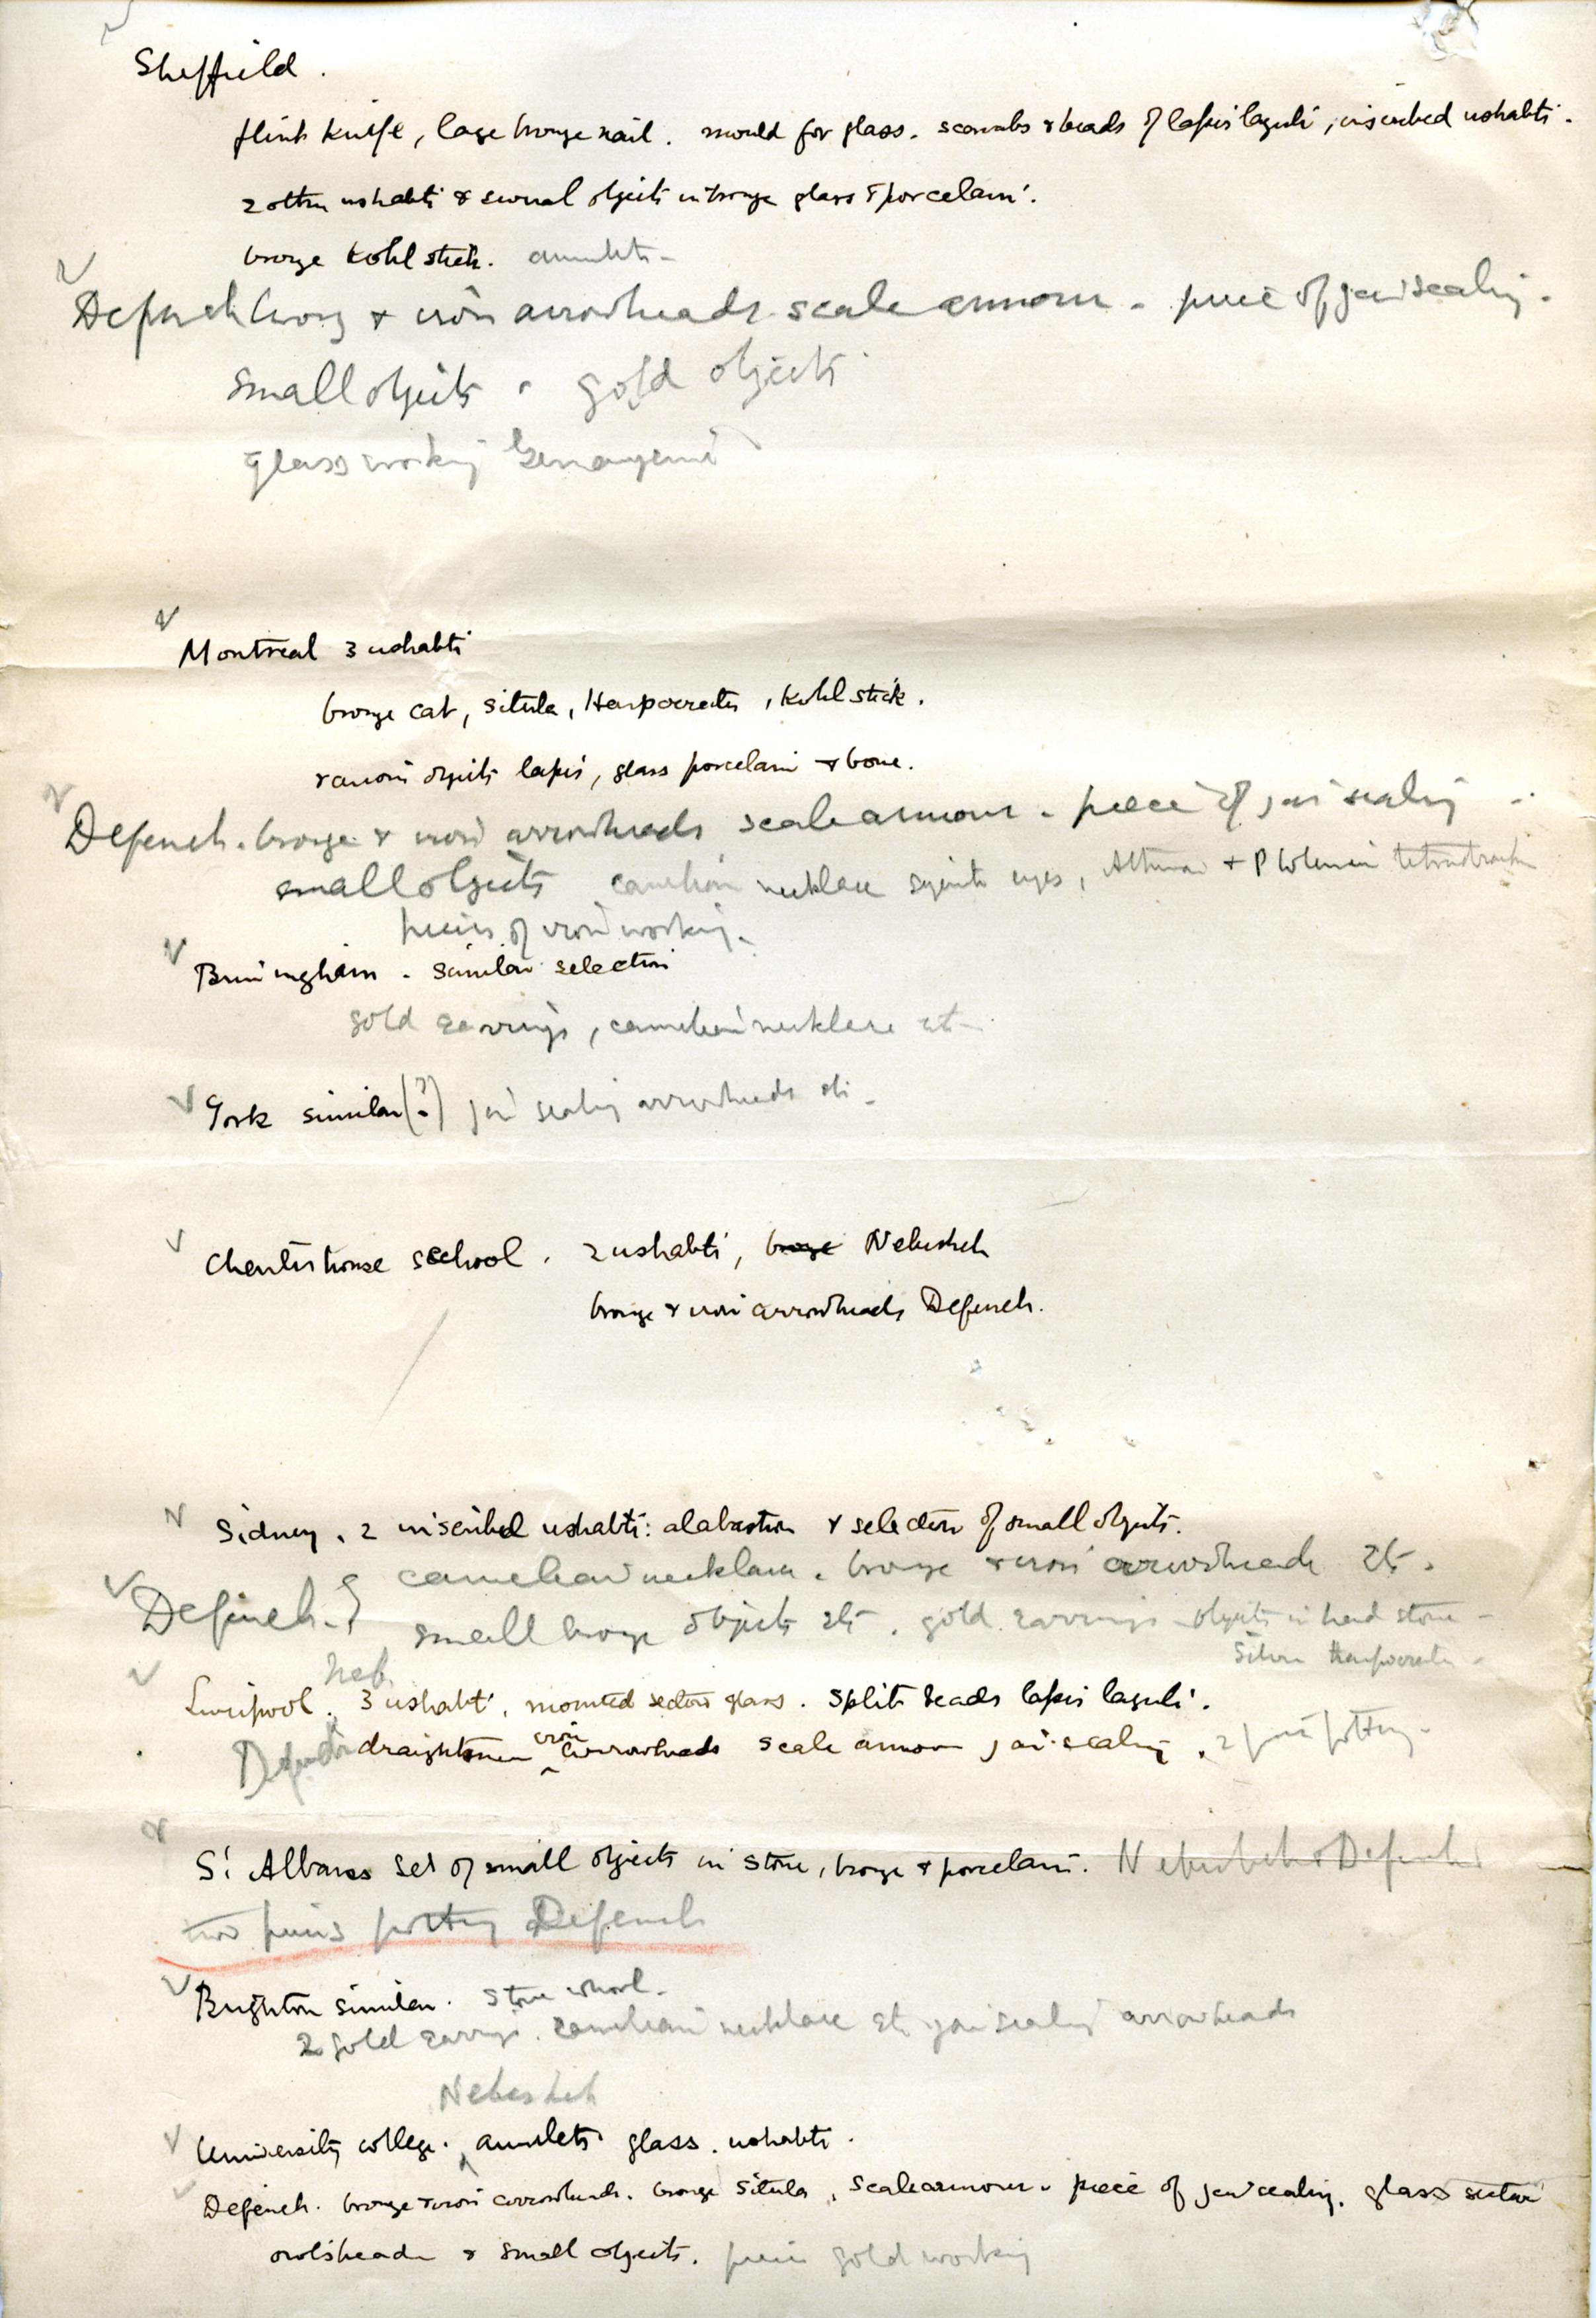 Sheffield.
flint knife, large bronze nail. mould for glass. scarabs & beads of lapis lazuli, inscribed ushabti.
2 other ushabti & several objects in bronze glass & porcelain.
bronze Kohl stick. amulets
Defneh bronze & iron arrowheads scale armour. piece of jar sealing.
small objects. gold objects
glass working
Montreal 3 ushabti
bronze cat, situla, Harpocrates, Kohl stick.
various objects lapis, glass porcelain & bone.
Defneh. bronze & iron arrowheads scale armour. piece of jar sealing
small objects carnelian necklace eyes, + Ptolemaic
pieces of iron working.
Birmingham. similar selection
gold earrings, carnelian necklace etc
York similar (?) jar sealing arrowheads etc
Charterhouse school. 2 ushabti, bronze Nebesheh
bronze & iron arrowheads Defneh.
Sidney. 2 inscribed ushabti: alabastron & selection of small objects.
Defneh. { carnelian necklace. bronze & iron arrowheads etc.
small bronze objects etc. gold earrings objects in hard stone
Silver Harpocrates
Neb.
Liverpool. 3 ushabti, mounted section glass. split beads lapis lazuli.
iron
Defneh draughtsmen arrowheads scale armour jar sealing. 2 pieces pottery
St Albans set of small objects in stone, bronze & porcelain. Nebesheh & Defneh
two pieces pottery Defneh
Brighton similar. stone whorl.
2 gold earrings. carnelian necklace etc jar sealing arrowheads
Nebesheh
University college. amulets glass. ushabti.
Defneh. bronze & iron arrowheads. bronze situla, scale armour. piece of jar sealing. glass section
owls head & small objects. pieces gold working